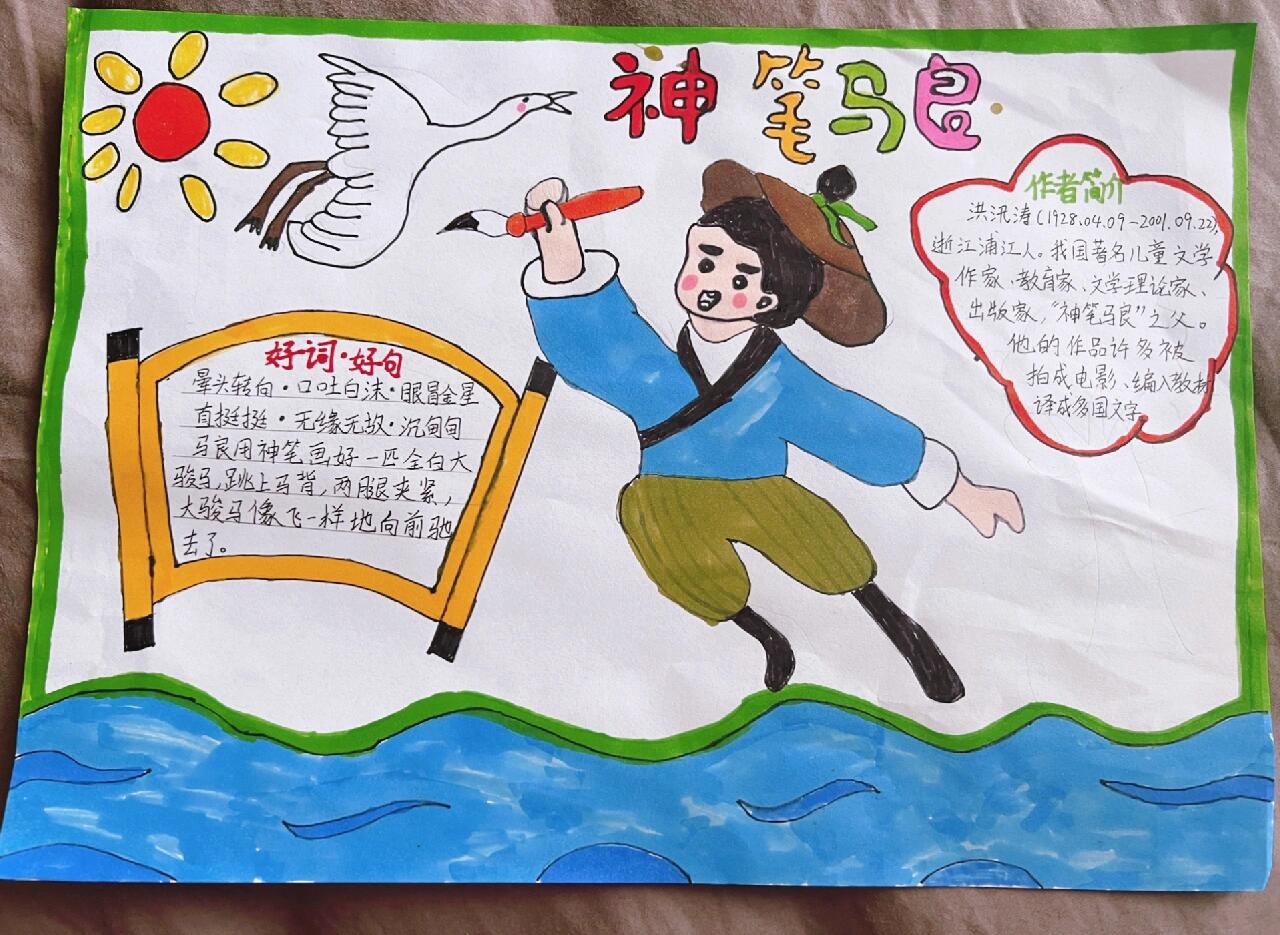 神笔马良
作者简介
洪汛涛(1928.04.09-2001.09.22),
浙江浦江人。我国著名儿童文学
作家、教育家、文学理论家、
出版家,“神笔马良”之父。
他的作品许多被
拍成电影、编入教材
译成多国文字
好词·好句
晕头转向·口吐白沫·眼冒金星
直挺挺·无缘无故·沉甸甸
马良用神笔画好一匹全白大
骏马,跳上马背,两腿夹紧,
大骏马像飞一样地向前驰
去了。